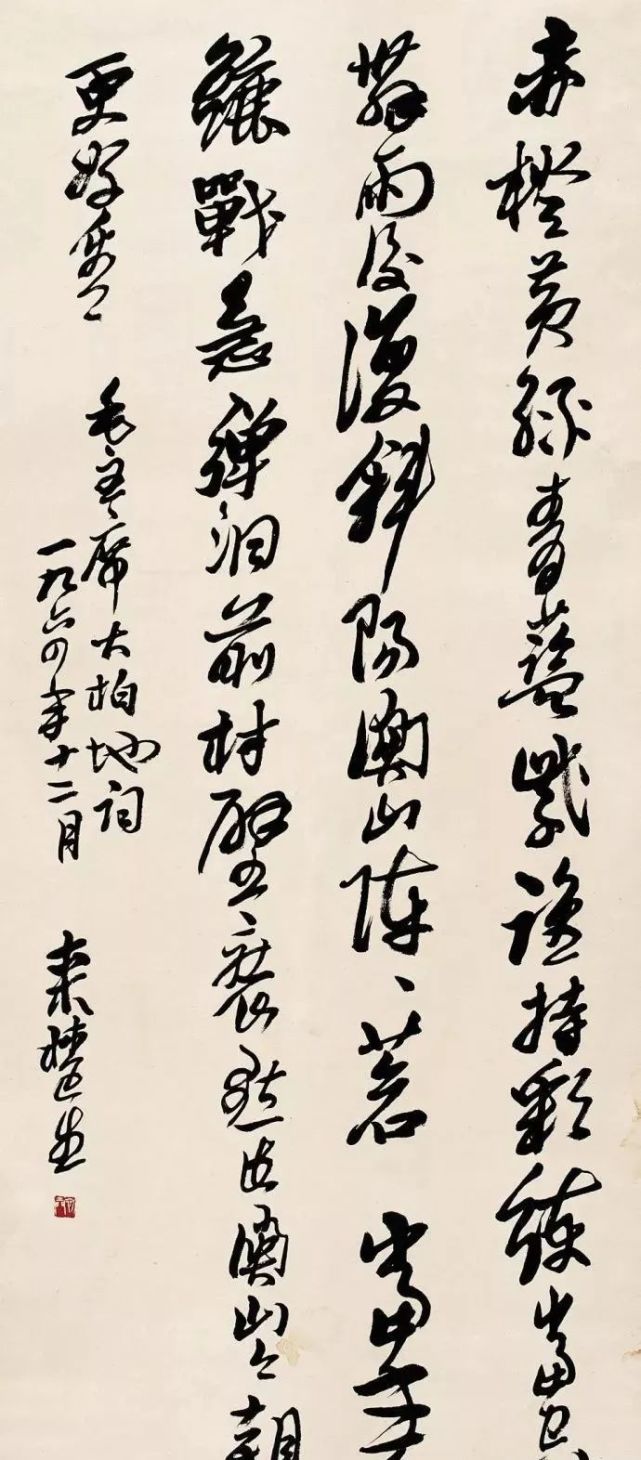 赤橙黃綠青藍紫誰持彩練當空
舞雨後復斜陽關山陣〻蒼 當年
鏖戰急彈洞前村壁裝點此關山今朝
更好看 毛主席大柏地詞
一九六四年十二月 來楚生